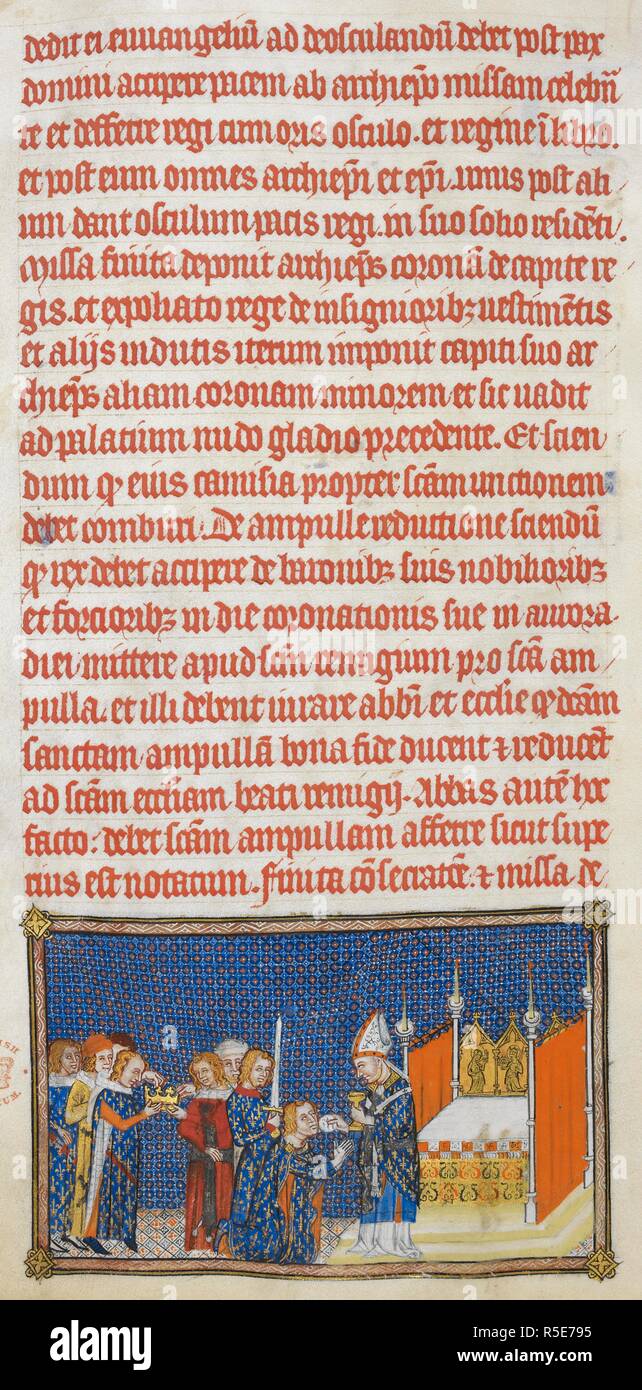 dedit ei euuangeliū ad deosculandū debet post pax
domini accipere pacem ab archiep̄o missam celebrā
te et defferre regi cum oris osculo. et regine ī libro.
et post eum omnes archiep̄i et ep̄i. unus post ali
um dant osculum pacis regi. in suo solio residēti.
Missa finita deponit archiep̄s coronā de capite re
gis. et expoliato rege de insignioribꝫ uestimētis
et alijs indutis iterum imponit capiti suo ar
chiep̄s aliam coronam minorem et sic uadit
ad palatium nudo gladio precedente. Et scien
dum ꝙ eius camisia propter scām unctionem
debet comburi. De ampulle reductione sciendū
ꝙ rex debet accipere de baronibꝫ suis nobilioribꝫ
et forcioribꝫ in die coronationis sue in aurora
diei mittere apud sc̄m remigium pro scā am
pulla. et illi debent iurare abbī et eccl̄ie ꝙ dc̄am
sanctam ampullā bona fide ducent ⁊ reducēt
ad scām eccl̄iam beati remigij. Abbas autē hoc
facto: debet scām ampullam afferre sicut supe
rius est notatum. Finita cōsecratōe. ⁊ missa de
a
alamy
Image ID: R5E795
www.alamy.com